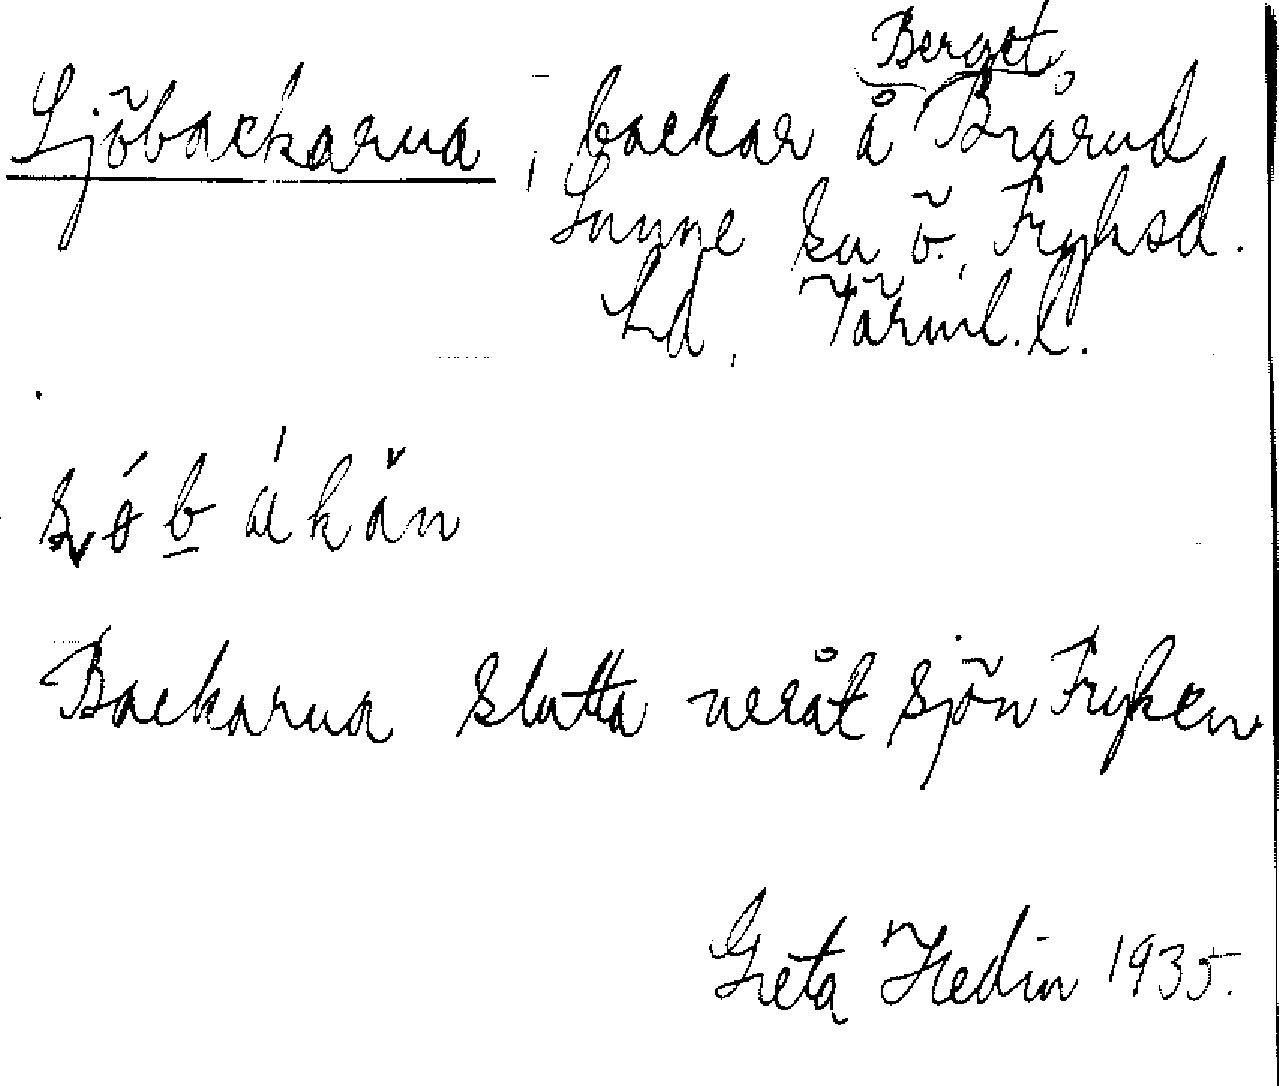 Berget
Sjöbackarna, backar å Brårud
Sunne sn ö., Fryksd.
hd, Värml. l.
Backarna slutta neråt sjön Fryken
Greta Hedin 1935.